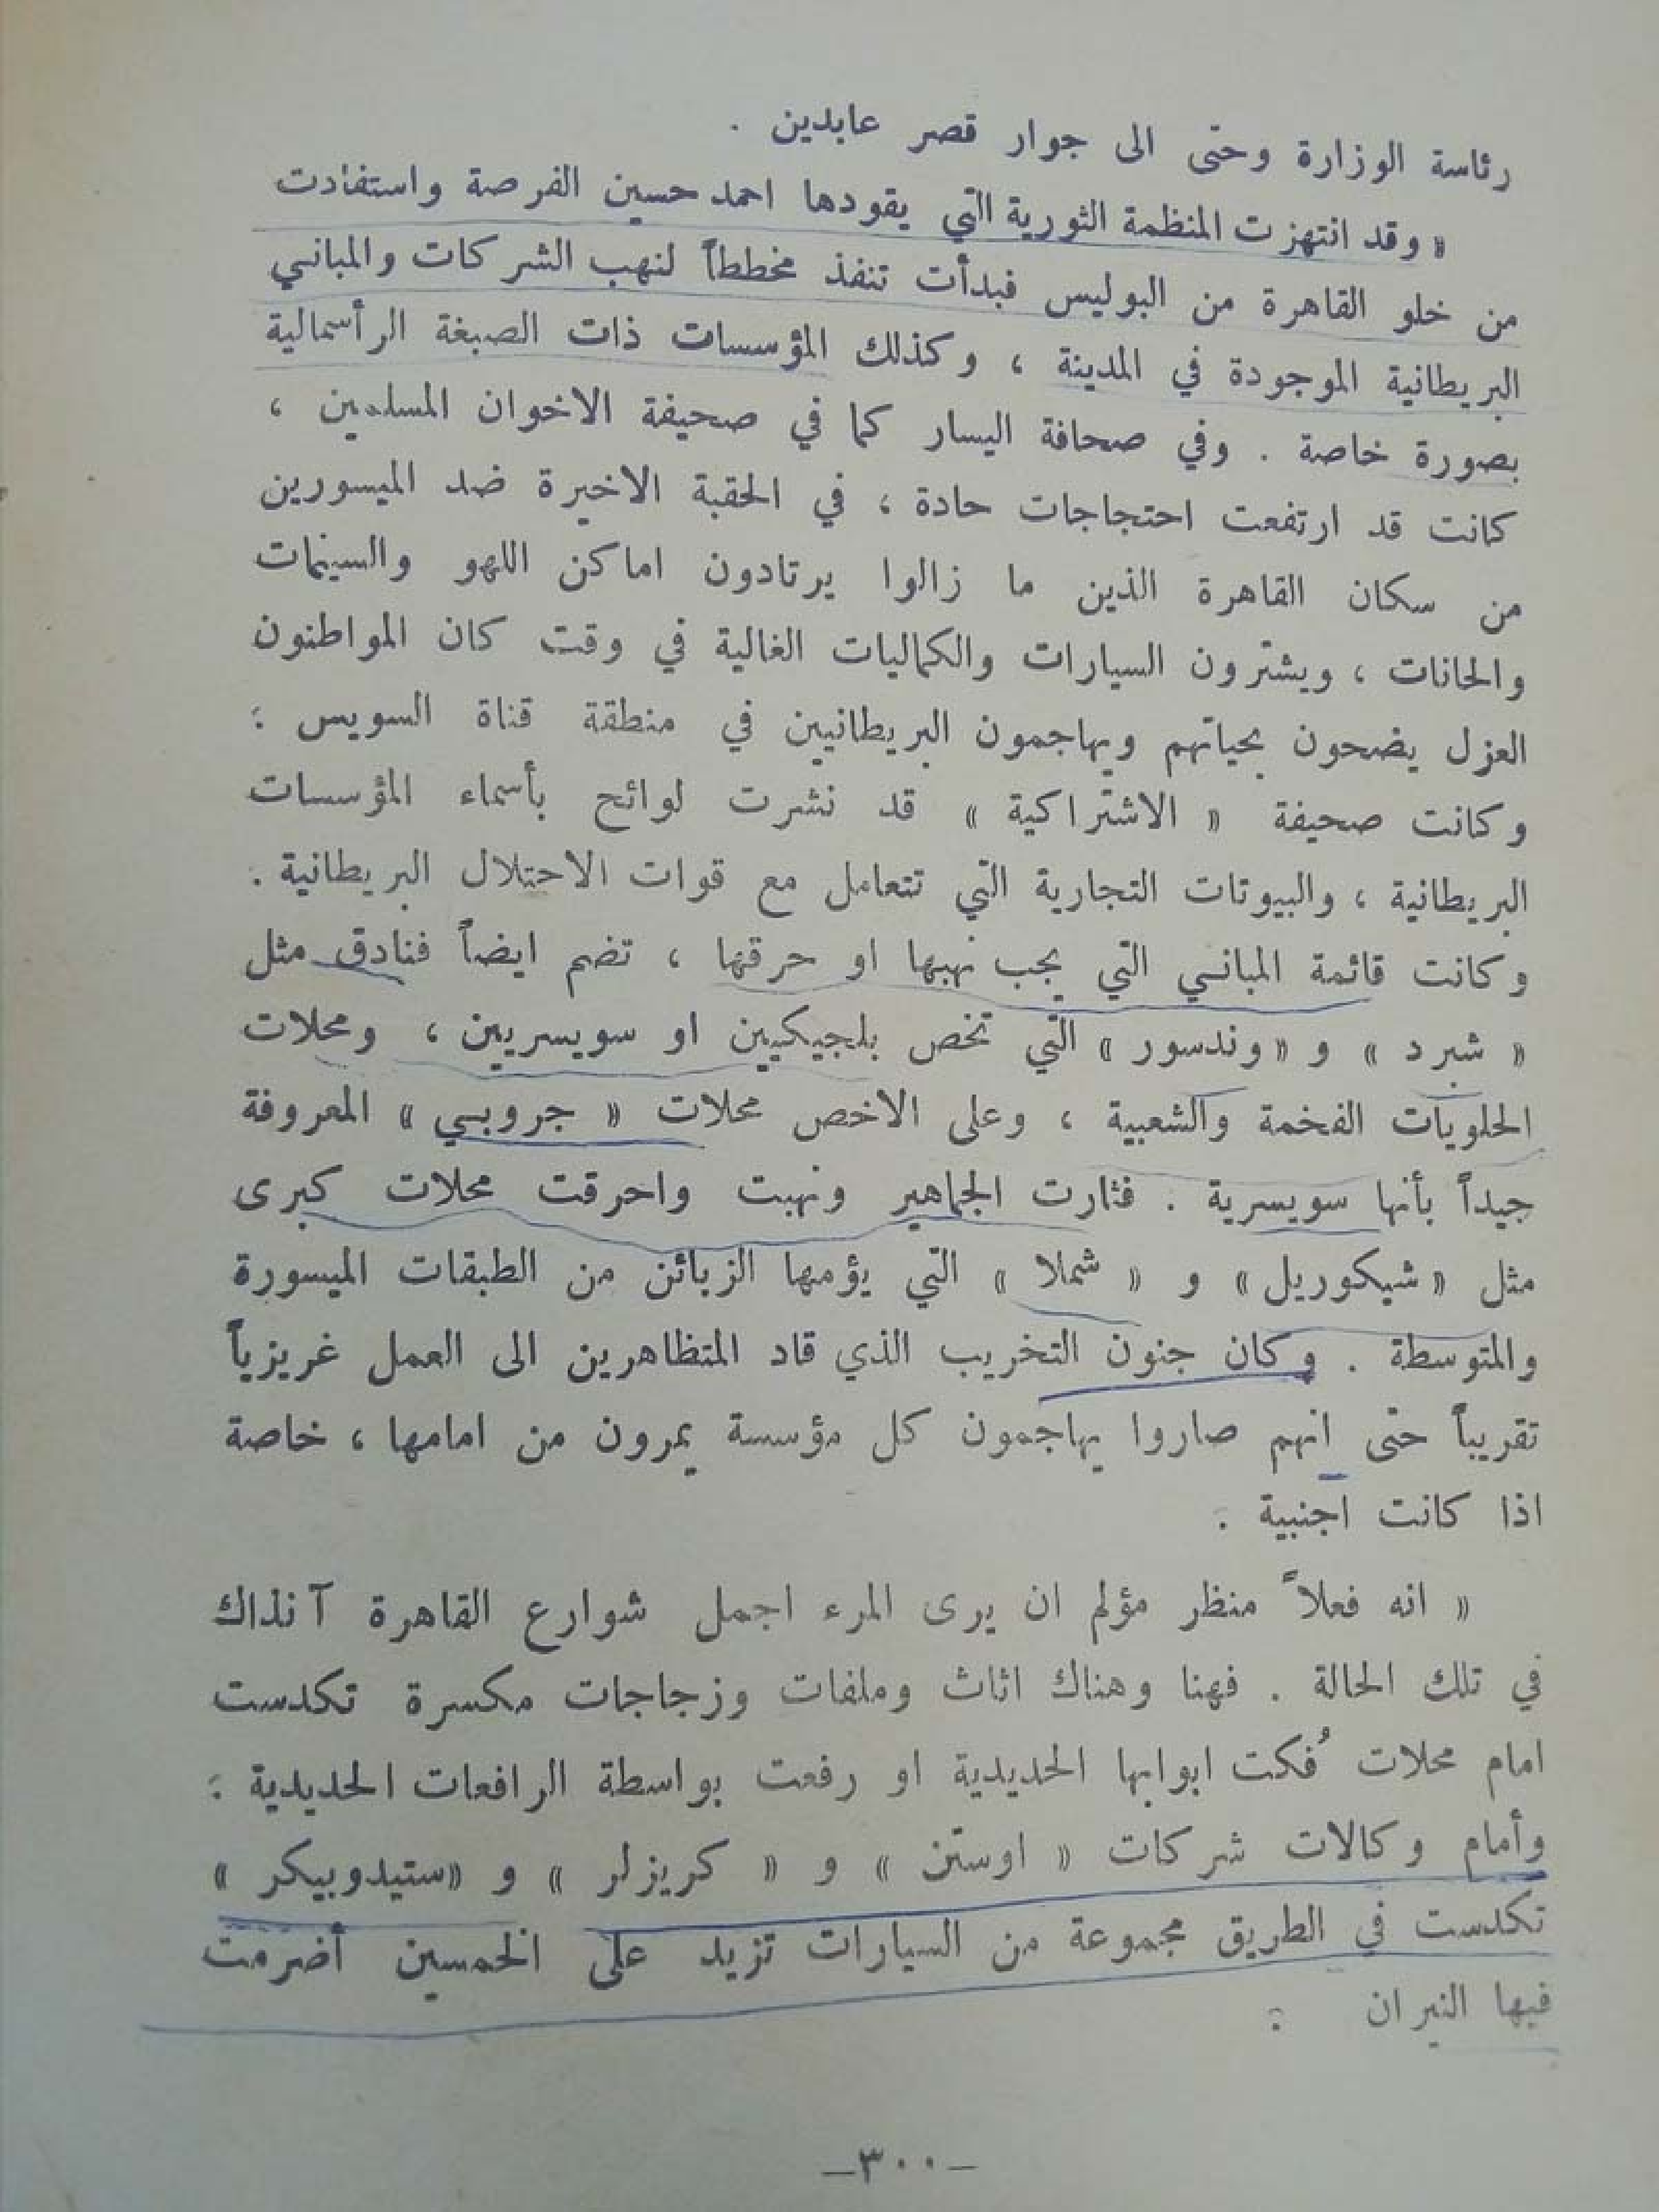 رئاسة الوزارة وحتى الى جوار قصر عابدين .
« وقد انتهزت المنظمة الثورية التي يقودها احمد حسين الفرصة واستفادت
من خلو القاهرة من البوليس فبدأت تنفذ مخططاً لنهب الشركات والمباني
البريطانية الموجودة في المدينة ، وكذلك المؤسسات ذات الصبغة الرأسمالية
بصورة خاصة . وفي صحافة اليسار كما في صحيفة الاخوان المسلمين ،
كانت قد ارتفعت احتجاجات حادة ، في الحقبة الاخيرة ضد الميسورين
من سكان القاهرة الذين ما زالوا يرتادون اماكن اللهو والسينمات
والحانات ، ويشترون السيارات والكماليات الغالية في وقت كان المواطنون
العزل يضحون بحياتهم ويهاجمون البريطانيين في منطقة قناة السويس :
وكانت صحيفة « الاشتراكية » قد نشرت لوائح بأسماء المؤسسات
البريطانية ، والبيوتات التجارية التي تتعامل مع قوات الاحتلال البريطانية .
وكانت قائمة المباني التي يجب نهبها او حرقها ، تضم ايضاً فنادق مثل
« شبرد » و « وندسور » التي تخص بلجيكيين او سويسريين ، ومحلات
الحلويات الفخمة والشعبية ، وعلى الاخص محلات « جروبي » المعروفة
جيداً بأنها سويسرية . فثارت الجماهير ونهبت واحرقت محلات كبرى
مثل « شيكوريل » و « شملا » التي يؤمها الزبائن من الطبقات الميسورة
والمتوسطة . وكان جنون التخريب الذي قاد المتظاهرين الى العمل غريزياً
تقريباً حتى انهم صاروا يهاجمون كل مؤسسة يمرون من امامها ، خاصة
اذا كانت اجنبية .
« انه فعلاً منظر مؤلم ان يرى المرء اجمل شوارع القاهرة آنذاك
في تلك الحالة . فهنا وهناك اثاث وملفات وزجاجات مكسرة تكدست
امام محلات فُكت ابوابها الحديدية او رفعت بواسطة الرافعات الحديدية :
وأمام وكالات شركات « اوستن » و « كريزلر » و « ستيدوبيكر »
تكدست في الطريق مجموعة من السيارات تزيد على الخمسين أضرمت
فيها النيران :
–٣٠٠–